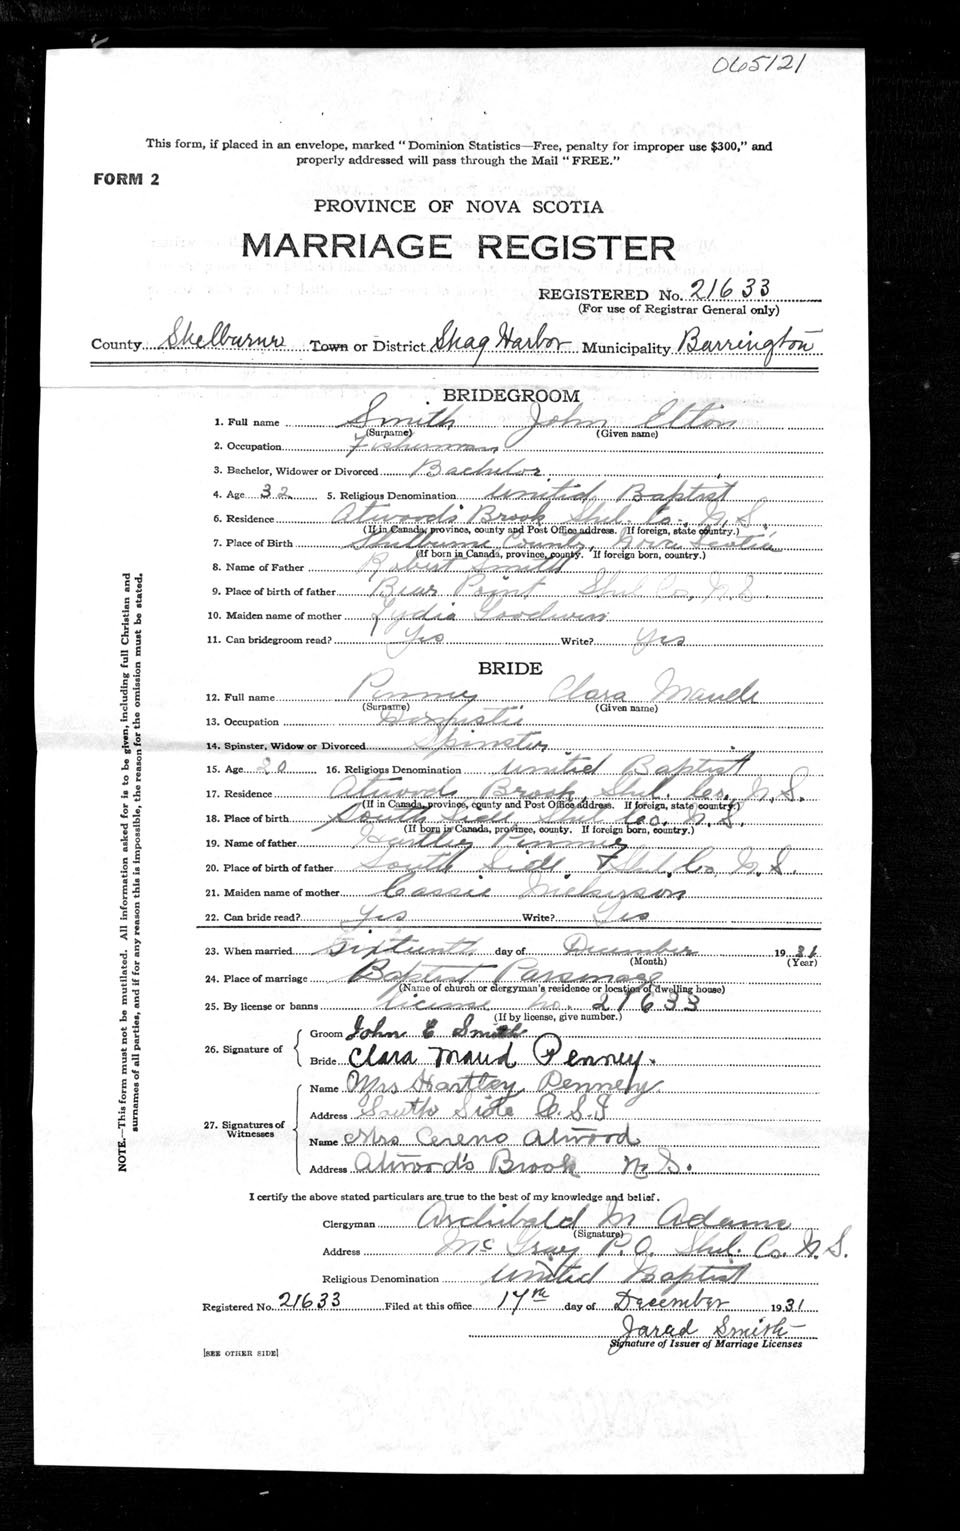 065121
This form, if placed in an envelope, marked "Dominion Statistics—Free, penalty for improper use $300," and
properly addressed will pass through the Mail "FREE."
FORM 2
PROVINCE OF NOVA SCOTIA
MARRIAGE REGISTER
REGISTERED No. 21633
(For use of Registrar General only)
County Shelburne Town or District Shag Harbor Municipality Barrington
BRIDEGROOM
1. Full name Smith John Elton
(Surname) (Given name)
2. Occupation Fisherman
3. Bachelor, Widower or Divorced Bachelor
4. Age 32 5. Religious Denomination United Baptist
6. Residence Atwood's Brook Shel. Co., N.S.
(If in Canada, province, county and Post Office address. If foreign, state country.)
7. Place of Birth Shelburne County, Nova Scotia
(If born in Canada, province, county. If foreign born, country.)
8. Name of Father Robert Smith
9. Place of birth of father Bear Point Shel Co, N.S.
10. Maiden name of mother Lydia Goodwin
11. Can bridegroom read? Yes Write? Yes
BRIDE
12. Full name Penney Clara Maude
(Surname) (Given name)
13. Occupation Domestic
14. Spinster, Widow or Divorced Spinster
15. Age 20 16. Religious Denomination United Baptist
17. Residence Atwoods Brook, Shel. Co. N.S.
(If in Canada, province, county and Post Office address. If foreign, state country.)
18. Place of birth South Side Shel Co. N.S.
(If born in Canada, province, county. If foreign born, country.)
19. Name of father Hartley Penney
20. Place of birth of father South Side Shel. Co N.S.
21. Maiden name of mother Cassie Nickerson
22. Can bride read? Yes Write? Yes
23. When married Sixteenth day of December 1931
(Month) (Year)
24. Place of marriage Baptist Parsonage
(Name of church or clergyman's residence or location of dwelling house)
25. By license or banns License no. 21633
(If by license, give number.)
26. Signature of Groom John E Smith
Bride Clara Maud Penney.
27. Signatures of Witnesses Name Mrs Hartley Pennely
Address South Side C.S.I
Name Mrs Cereno Atwood
Address Atwood's Brook N.S.
I certify the above stated particulars are true to the best of my knowledge and belief.
Clergyman Archibald M Adams
(Signature)
Address McGray P.O. Shel. Co. N.S.
Religious Denomination United Baptist
Registered No. 21633 Filed at this office 17th day of December 1931
Jarad Smith
Signature of Issuer of Marriage Licenses
[SEE OTHER SIDE]
NOTE.—This form must not be mutilated. All information asked for is to be given, including full Christian and
surnames of all parties, and if for any reason this is impossible, the reason for the omission must be stated.